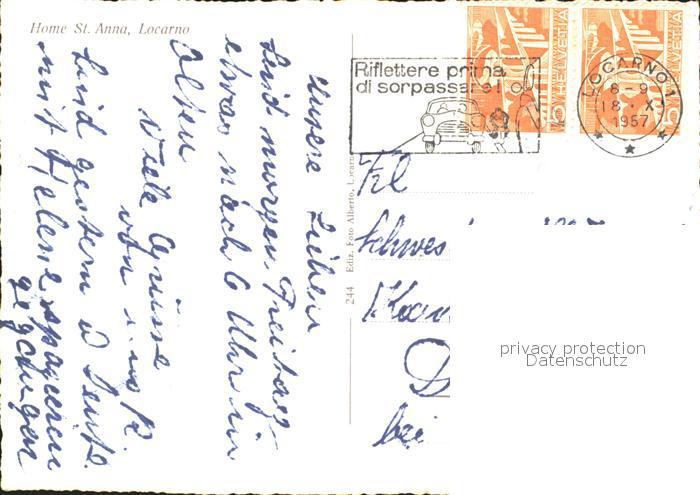 Home St. Anna, Locarno
Unsere Lieben
Sind morgen Freitag
etwas nach 6 Uhr in
Olten
Viele Grüsse
von uns
Sind gestern
mit Helene spazieren
gegangen
244 Ediz. Foto Alberto, Locarno
Riflettere prima
di sorpassare!
LOCARNO 1
8-9
18. X.
1957
HELVETIA
5
HELVETIA
5
Frl
Schwes
bei
privacy protection
Datenschutz